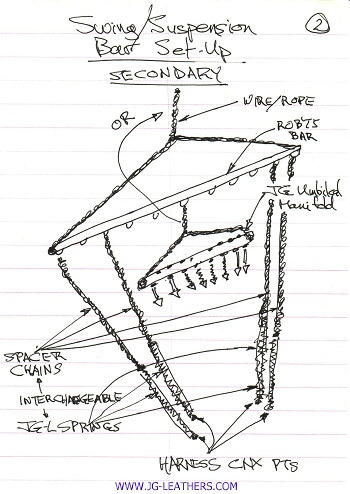 Swing/Suspension
Bar Set-Up
SECONDARY
2
WIRE/ROPE
OR
ROB'TS
BAR
JG Umbilical
Manifold
SPACER
CHAINS
INTERCHANGEABLE
JG-L SPRINGS
HARNESS CNX PTS
WWW.JG-LEATHERS.COM